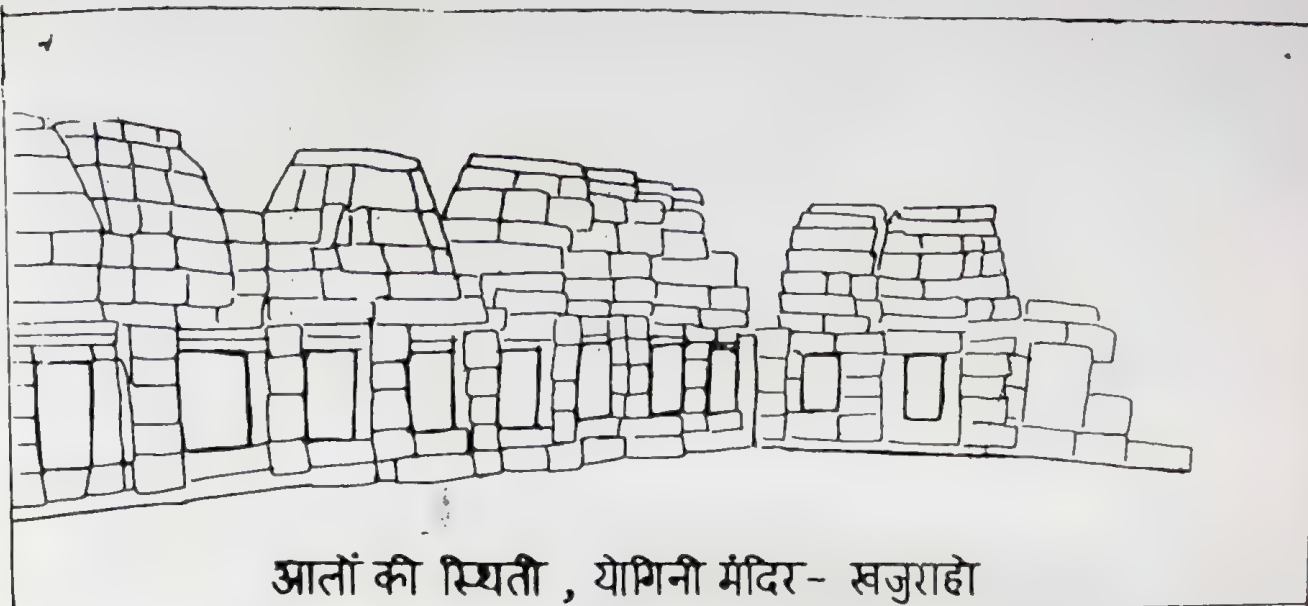 आलों की स्थिती , योगिनी मंदिर - खजुराहो